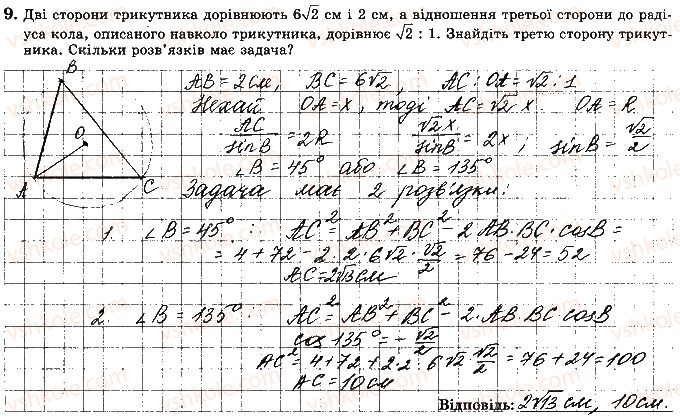 9. Дві сторони трикутника дорівнюють 6√2 см і 2 см, а відношення третьої сторони до раді-
уса кола, описаного навколо трикутника, дорівнює √2 : 1. Знайдіть третю сторону трикут-
ника. Скільки розв'язків має задача?
B
O
A
C
AB = 2см, BC = 6√2, AC : OA = √2 : 1
Нехай OA = x, тоді AC = √2 x OA = R
AC/sinB = 2R √2x/sinB = 2x; sinB = √2/2
∠B = 45° або ∠B = 135°
Задача має 2 розв'язки:
1. ∠B = 45°: AC² = AB² + BC² - 2·AB·BC·cosB =
= 4 + 72 - 2·2·6√2·√2/2 = 76 - 24 = 52
AC = 2√13 см
2. ∠B = 135°: AC² = AB² + BC² - 2·AB·BC cosB
cos 135° = -√2/2
AC² = 4 + 72 + 2·2·6√2·√2/2 = 76 + 24 = 100
AC = 10 см
Відповідь: 2√13 см, 10 см.